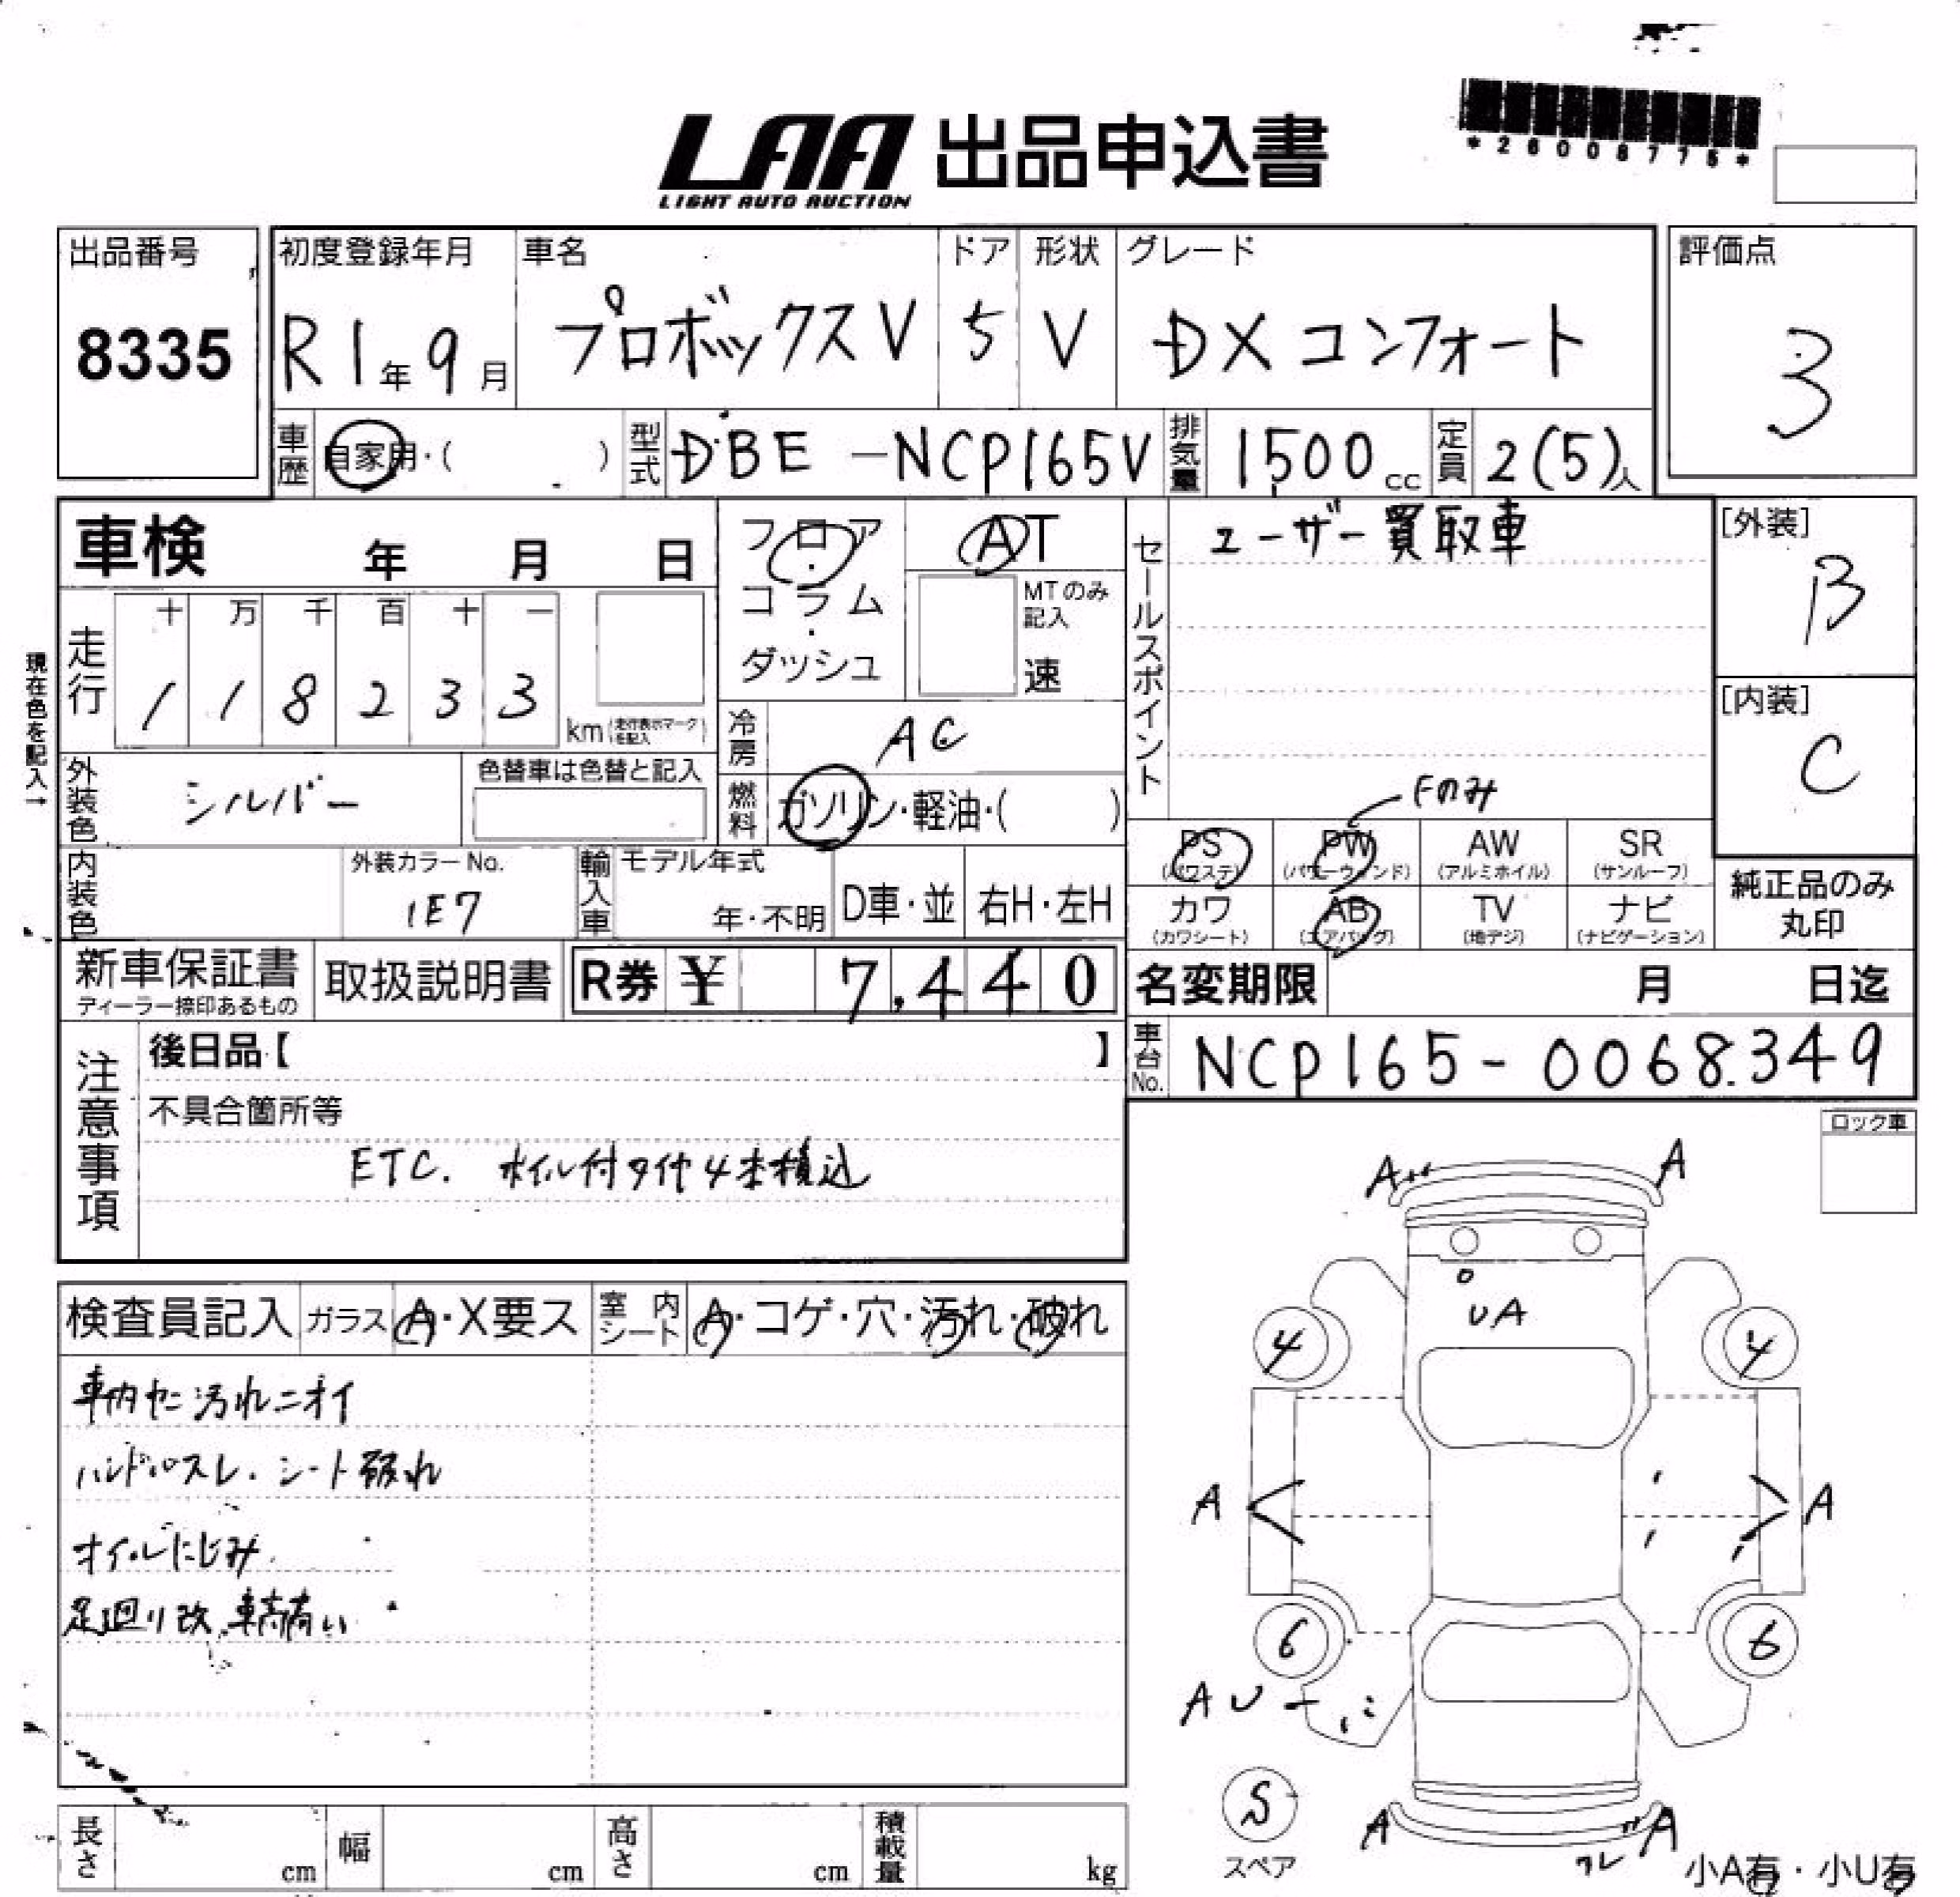 LAA 出品申込書
LIGHT AUTO AUCTION
*26008775*
出品番号
8335
初度登録年月
R1年9月
車名
プロボックスV
ドア
5
形状
V
グレード
DXコンフォート
評価点
3
車歴
自家用・( )
型式
DBE-NCP165V
排気量
1500cc
定員
2(5)人
車検 年 月 日
フロア・コラム・ダッシュ
AT
MTのみ記入
速
セールスポイント
ユーザー買取車
[外装]
B
[内装]
C
現在色を記入→
走行
十 万 千 百 十 一
1 1 8 2 3 3
km(走行表示マークを記入)
冷房
AC
外装色
シルバー
色替車は色替と記入
燃料
ガソリン・軽油・( )
Fのみ
PS
(パワステ)
PW
(パワーウィンド)
AW
(アルミホイル)
SR
(サンルーフ)
カワ
(カワシート)
AB
(エアバッグ)
TV
(地デジ)
ナビ
(ナビゲーション)
純正品のみ
丸印
内装色
外装カラーNo.
1E7
輸入車
モデル年式
年・不明
D車・並
右H・左H
新車保証書
ディーラー捺印あるもの
取扱説明書
R券 ¥ 7,440
名変期限 月 日迄
車台No.
NCP165-0068349
注意事項
後日品【 】
不具合箇所等
ETC. ホイル付タイヤ4本積込
ロック車
検査員記入
ガラス
A・X要ス
室内シート
A・コゲ・穴・汚れ・破れ
汚れニオイ
ハンドルスレ. シート破れ
オイルにじみ
足廻り改
A A
UA
4 4
A A
6 6
AU
S
スペア
A A
スレ
小A有・小U有
長さ cm
幅 cm
高さ cm
積載量 kg